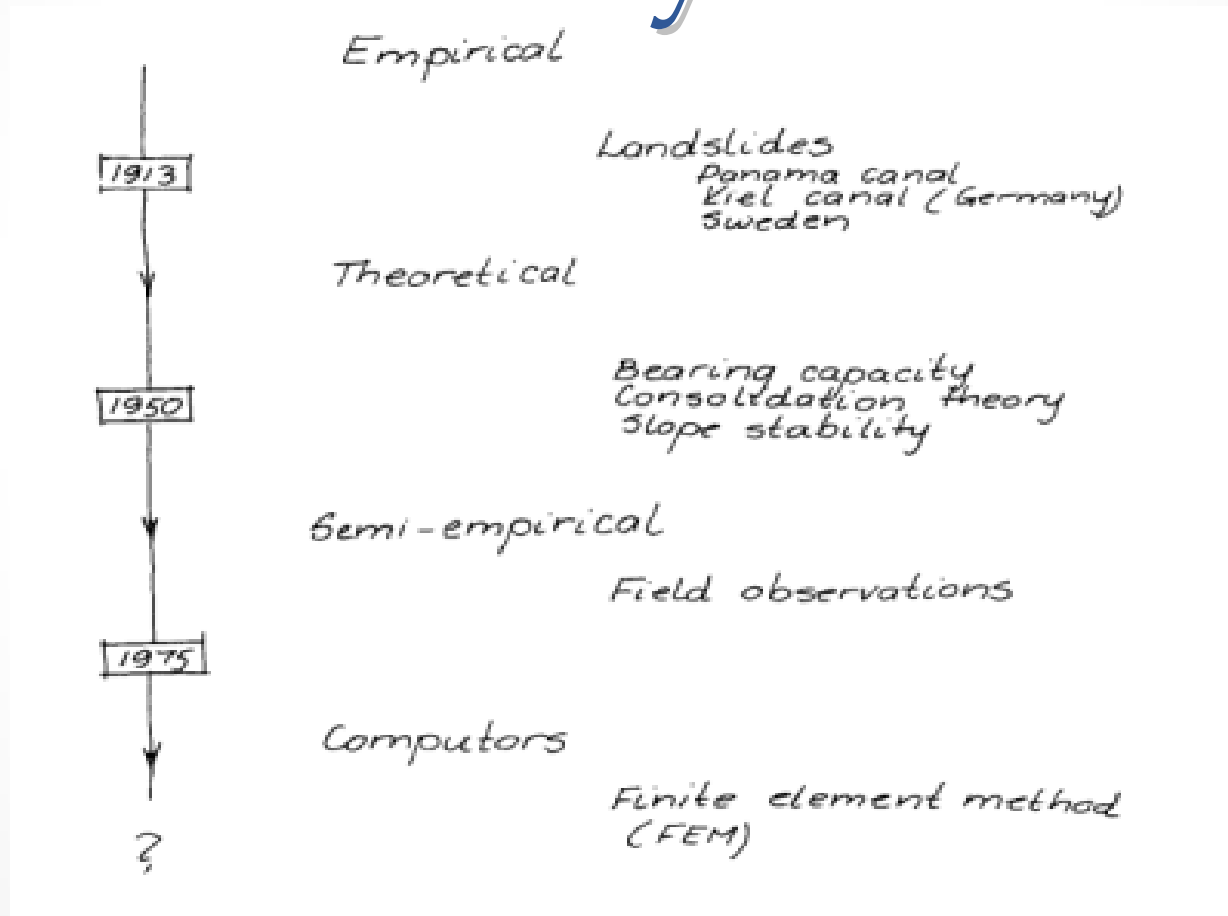 Empirical
1913
Landslides
Panama canal
Kiel canal (Germany)
Sweden
Theoretical
1950
Bearing capacity
Consolidation theory
Slope stability
Semi-empirical
Field observations
1975
Computors
Finite element method
(FEM)
?